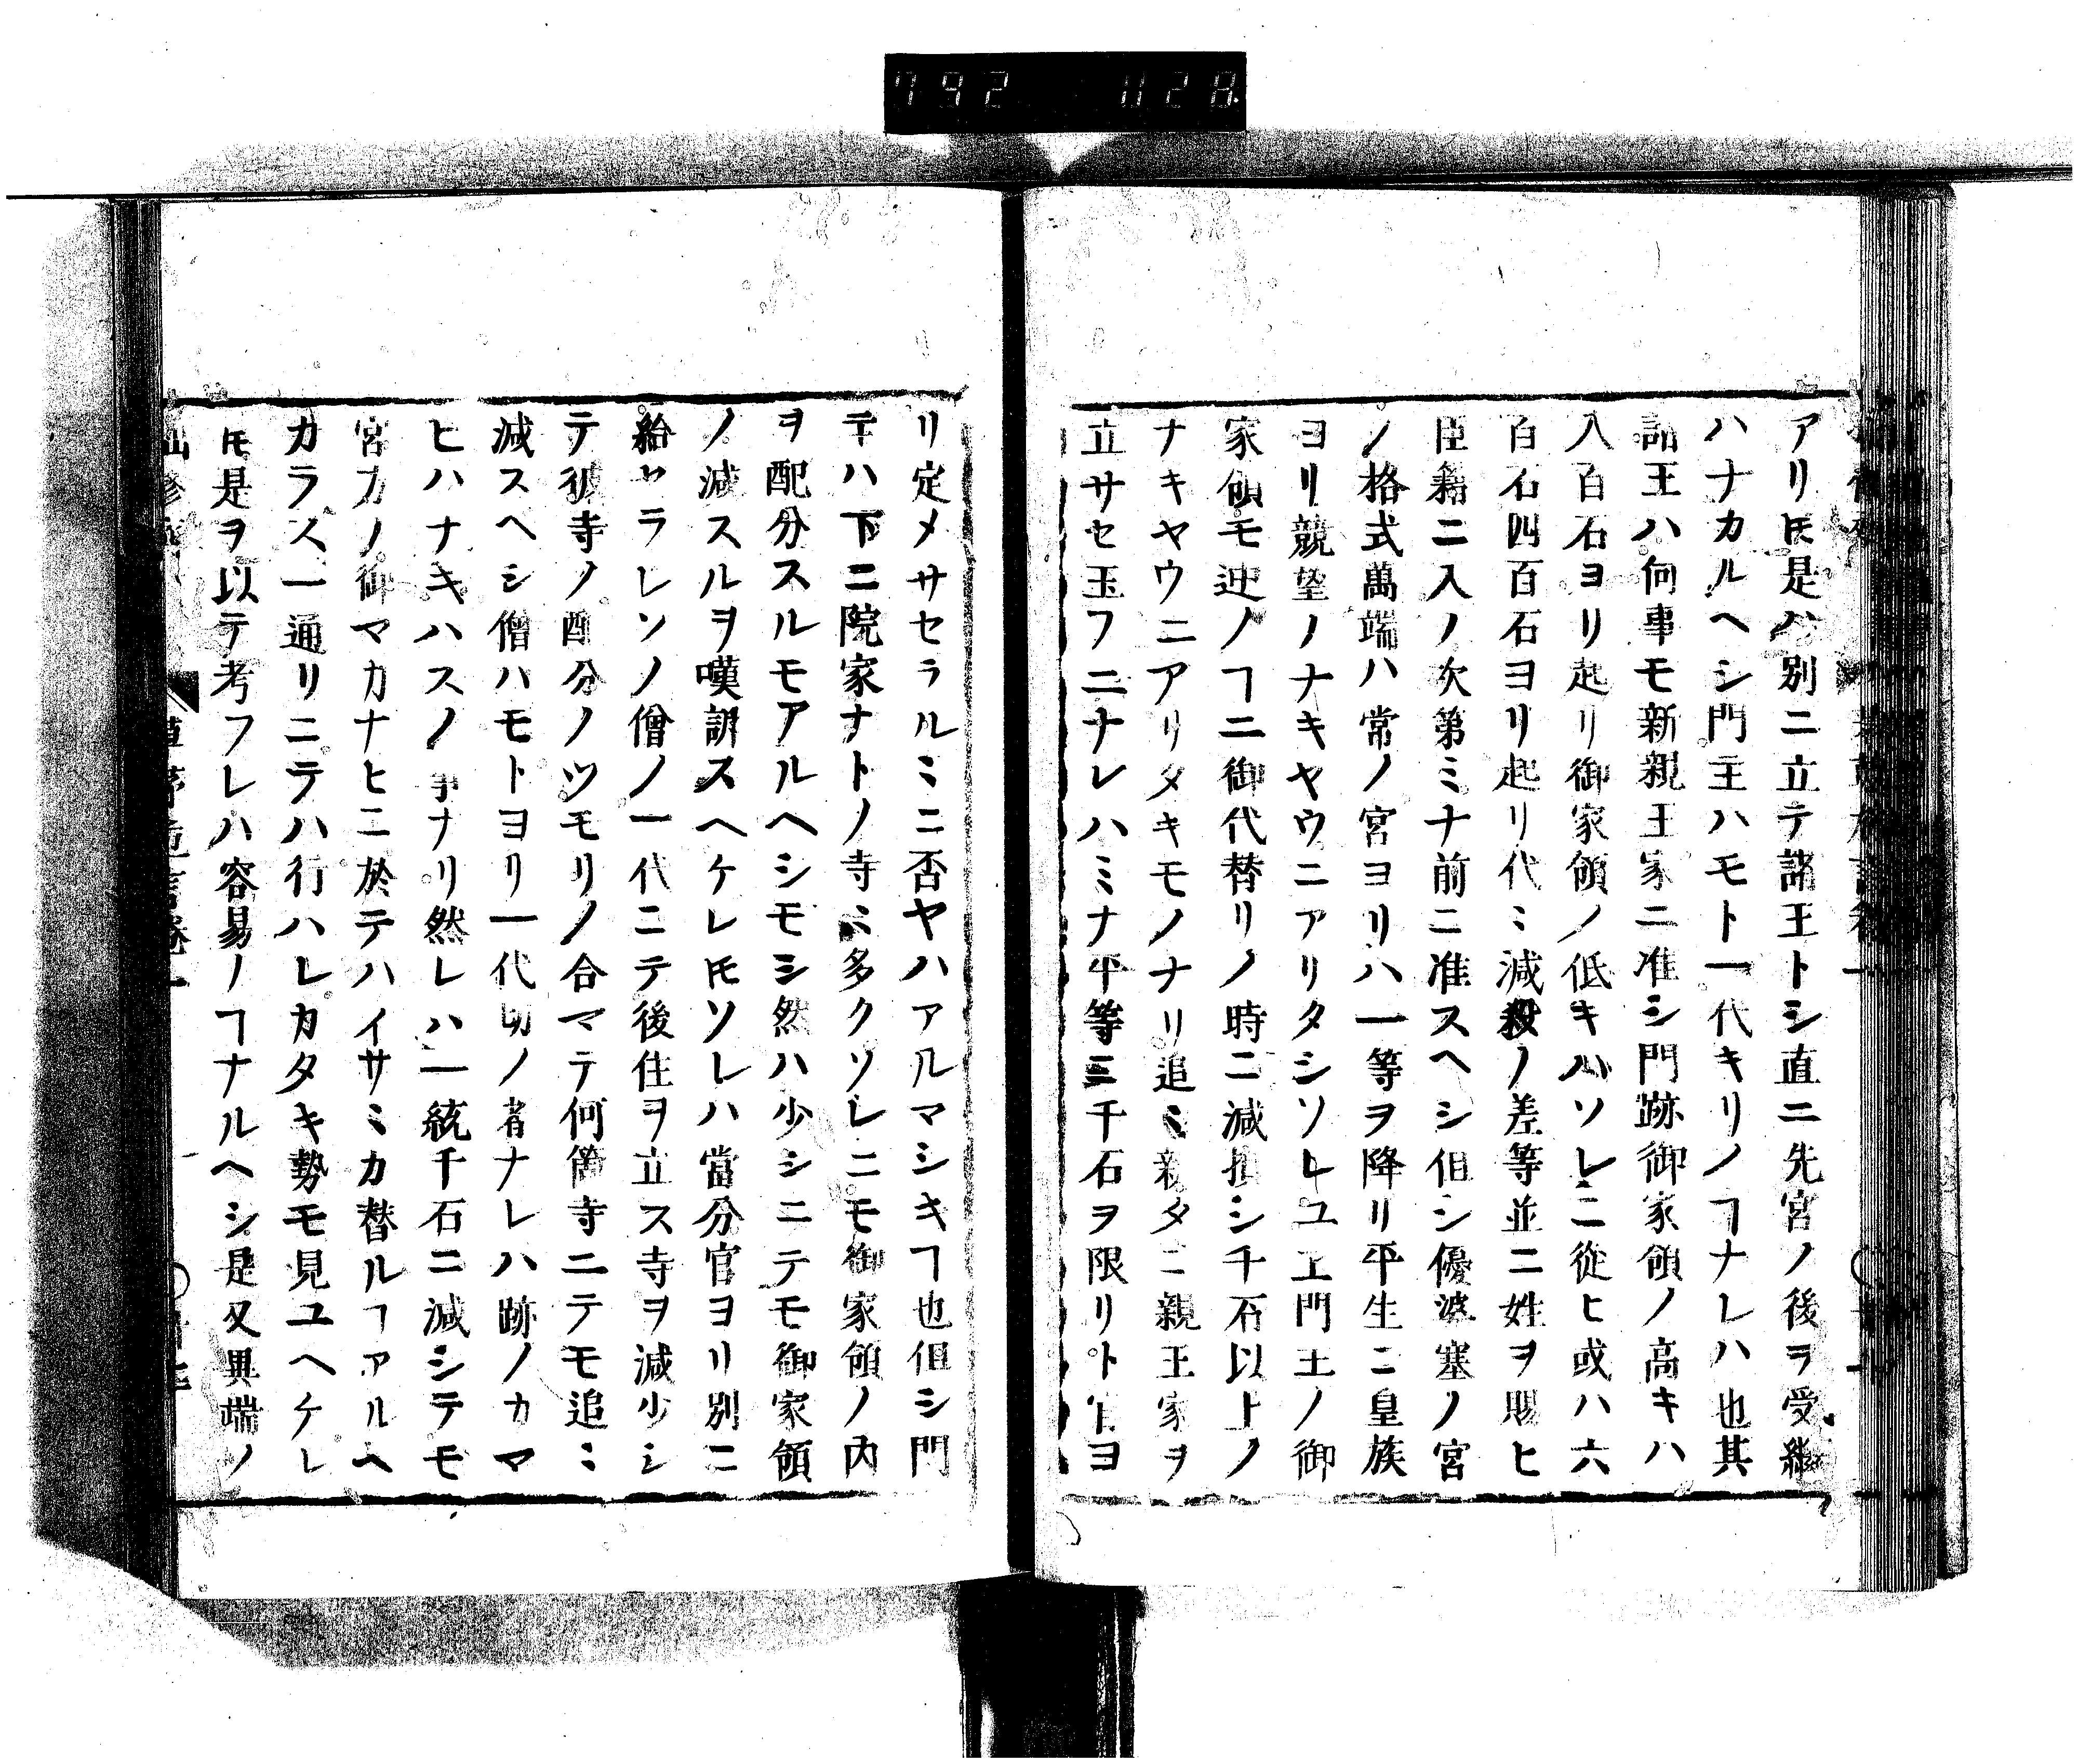 792 1128
アリ𪜈是ハ別ニ立テ諸王トシ直ニ先宮ノ後ヲ受繼
ハナカルヘシ門主ハモト一代キリノヿナレハ也其
諸王ハ何事モ新親王家ニ准シ門跡御家領ノ高キハ
八百石ヨリ起リ御家領ノ低キハソレニ從ヒ或ハ六
百石四百石ヨリ起リ代ミ減殺ノ差等並ニ姓ヲ賜ヒ
臣籍ニ入ノ次第ミナ前ニ准スヘシ但シ優婆塞ノ宮
ノ格式萬端ハ常ノ宮ヨリハ一等ヲ降リ平生ニ皇族
ヨリ競望ノナキヤウニアリタシソレユエ門主ノ御
家領モ迚ノヿニ御代替リノ時ニ減損シ千石以上ノ
ナキヤウニアリタキモノナリ追ミ新タニ親王家ヲ
立サセ玉フニナレハミナ平等ニ千石ヲ限リト官ヨ
リ定メサセラルミニ否ヤハアルマシキヿ也但シ門
テハ下ニ院家ナトノ寺ミ多クソレニモ御家領ノ内
ヲ配分スルモアルヘシモシ然ハ少シニテモ御家領
ノ減スルヲ嘆訴スヘケレ𪜈ソレハ當分官ヨリ別ニ
給セラレソノ僧ノ一代ニテ後住ヲ立ス寺ヲ減少シ
テ彼寺ノ配分ノツモリノ合マテ何箇寺ニテモ追ミ
減スヘシ僧ハモトヨリ一代切ノ者ナレハ跡ノカマ
ヒハナキハスノ事ナリ然レハ一統千石ニ減シテモ
宮方ノ御マカナヒニ於テハイサミカ替ルヿアルヘ
カラス一通リニテハ行ハレカタキ勢モ見ユヘケレ
𪜈是ヲ以テ考フレハ容易ノヿナルヘシ是又異端ノ